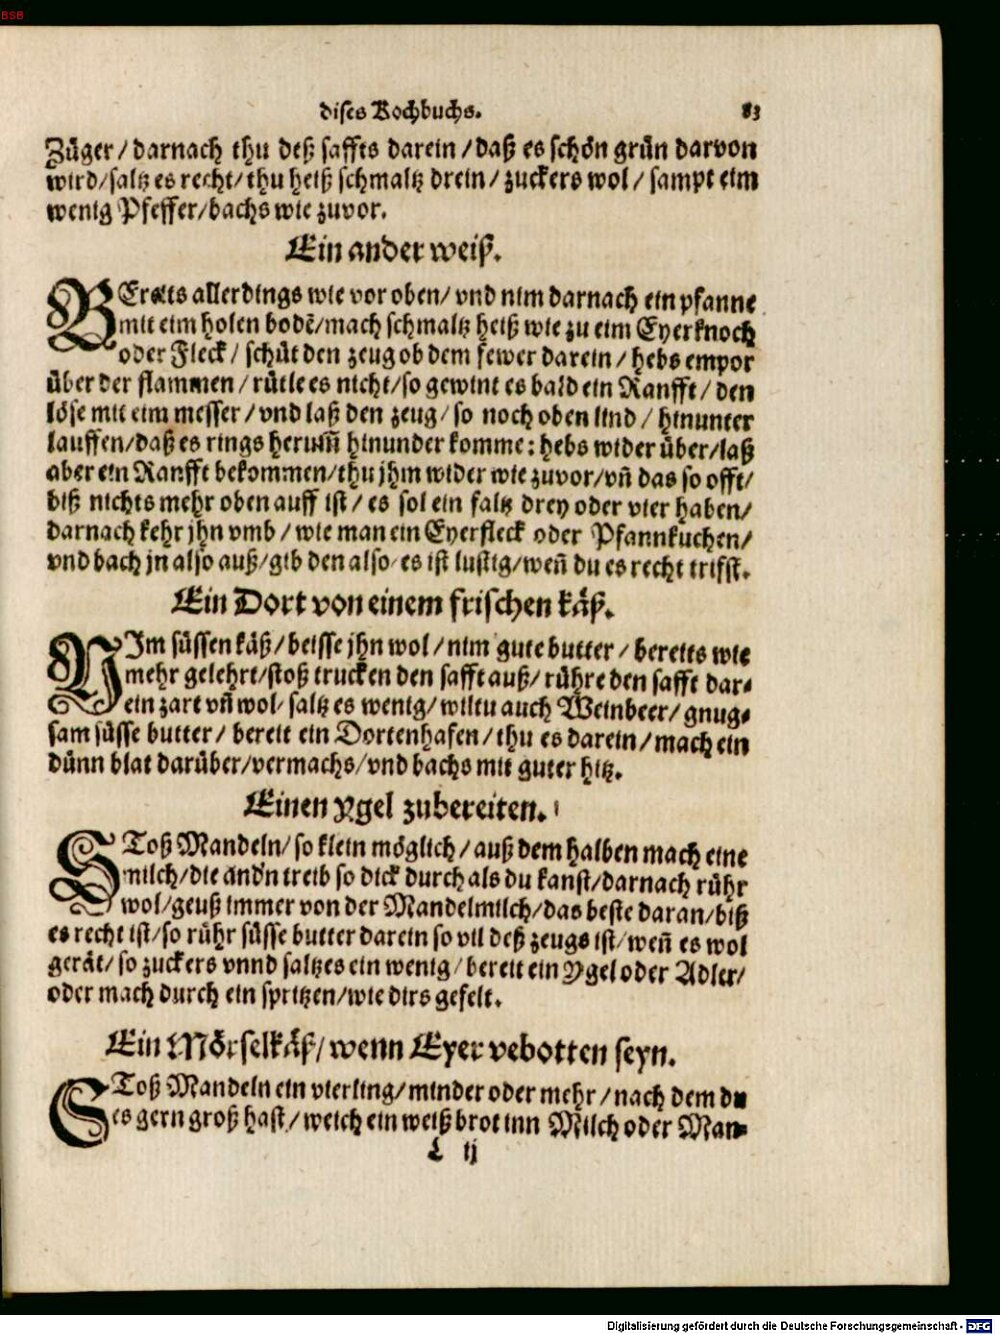 BSB
dises Kochbuchs. 83
Züger / darnach thu deß saffts darein / daß es schön grün darvon
wird / saltz es recht / thu heiß schmaltz drein / zuckers wol / sampt eim
wenig Pfeffer / bachs wie zuvor.
Ein ander weiß.
BEreits allerdings wie vor oben / vnd nim darnach ein pfanne
mit eim holen bodē / mach schmaltz heiß wie zu eim Eyerknoch
oder Fleck / schüt den zeug ob dem fewer darein / hebs empor
über der flammen / rütle es nicht / so gewint es bald ein Ranfft / den
löse mit eim messer / vnd laß den zeug / so noch oben lind / hinunter
lauffen / daß es rings herum̃ hinunder komme: hebs wider über / laß
aber ein Ranfft bekommen / thu jhm wider wie zuvor / vñ das so offt /
biß nichts mehr oben auff ist / es sol ein faltz drey oder vier haben /
darnach kehr jhn vmb / wie man ein Eyerfleck oder Pfannkuchen /
vnd bach jn also auß / gib den also / es ist lustig / weñ du es recht triffst.
Ein Dort von einem frischen käß.
NIm süssen käß / beisse jhn wol / nim gute butter / bereits wie
mehr gelehrt / stoß trucken den safft auß / rühre den safft dar-
ein zart vñ wol / saltz es wenig / wiltu auch Weinbeer / gnug-
sam süsse butter / bereit ein Dortenhafen / thu es darein / mach ein
dünn blat darüber / vermachs / vnd bachs mit guter hitz.
Einen Ygel zubereiten.
SToß Mandeln / so klein möglich / auß dem halben mach eine
milch / die andn treib so dick durch als du kanst / darnach rühr
wol / geuß immer von der Mandelmilch / das beste daran / biß
es recht ist / so rühr süsse butter darein so vil deß zeugs ist / weñ es wol
gerät / so zuckers vnnd saltzes ein wenig / bereit ein Ygel oder Adler /
oder mach durch ein spritzen / wie dirs gefelt.
Ein Mörselkäß / wenn Eyer vebotten seyn.
SToß Mandeln ein vierling / minder oder mehr / nach dem du
es gern groß hast / weich ein weiß brot inn Milch oder Man-
L ij
Digitalisierung gefördert durch die Deutsche Forschungsgemeinschaft - DFG